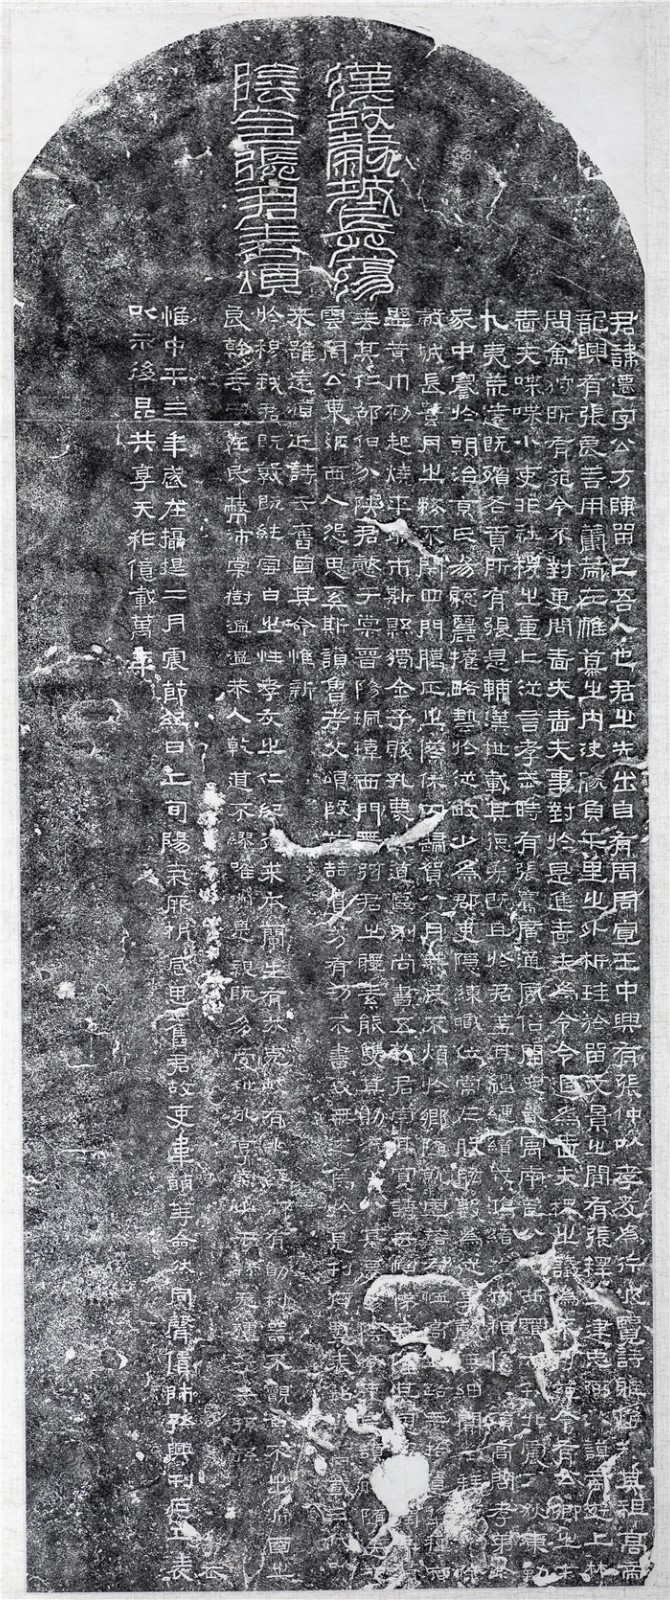 漢故穀城長蕩
陰令張君表頌
君諱遷字公方陳留己吾人也君之先出自有周周宣王中興有張仲以孝友為行披覽詩雅煥知其祖高帝
龍興有張良善用籌策在帷幕之內決勝負千里之外析珪於留文景之間有張釋之建忠弼之謨帝遊上林
問禽狩所有苑令不對更問嗇夫嗇夫事對於是進嗇夫為令令退為嗇夫釋之議為不可苑令有公卿之才
嗇夫喋喋小吏非社稷之重上從言孝武時有張騫廣通風俗開定畿寓南苞八蠻西羈六戎北震五狄東勤
九夷荒遠既殯各貢所有張是輔漢世載其德爰既且於君蓋其繵縺纘戎鴻緒牧守相係不殞高問孝弟於
家中謇於朝治京氏易聰麗權略藝於從畋少為郡吏隱練職位常在股肱數為從事聲無細聞徵拜郎中除
穀城長蠶月之務不閉四門臘正之傺休囚歸賀八月筭民不煩於鄉隨就虛落存恤高年路無拾遺犁種宿
野黃巾初起燒平城市斯縣獨全子賤孔蔑其道區別尚書五教君崇其寬詩云愷悌君隆其恩東里潤色君
垂其仁邵伯分陝君懿于棠晉陽珮瑋西門帶弦君之體素能雙其勛流化八基遷蕩陰令吏民頡頏隨送如
雲周公東征西人怨思奚斯讚魯考父頌殷前喆遺芳有功不書後無述焉於是刊石豎表銘勒萬載三代以
來雖遠猶近詩云舊國其命惟新
於穆我君既敦既純雪白之性孝友之仁紀行來本蘭生有芬克岐有兆綏御有勛利器不覿魚不出淵國之
良幹垂愛在民蔽沛棠樹溫溫恭人乾道不繆唯淑是親既多受祉永享南山干祿無疆子子孫孫
惟中平三年歲在攝提二月震節紀日上旬陽氣厥析感思舊君故吏韋萌等僉然同聲賃師孫興刊石立表
以示後昆共享天祚億載萬年